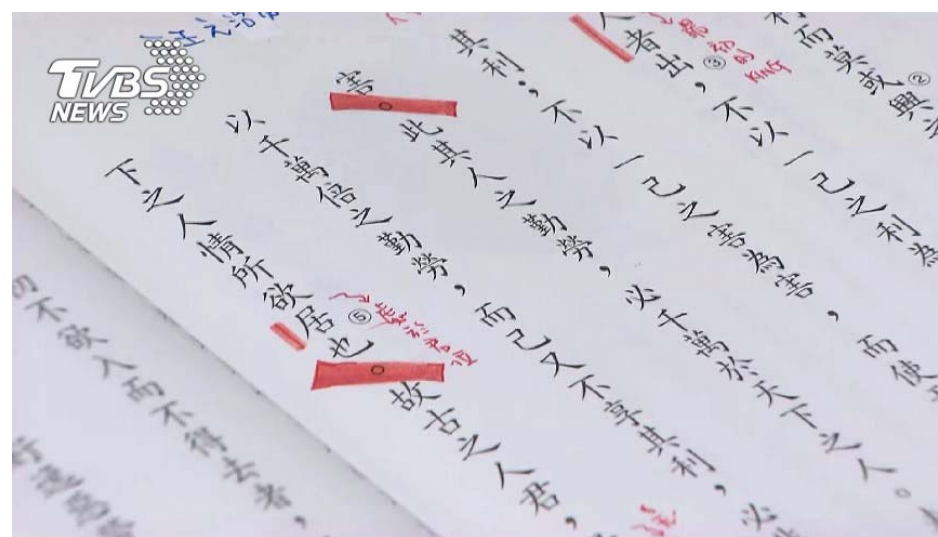 TVBS
NEWS
利而莫或興②之
人者出，③不以一己之利為
最初的KING
其利；不以一己之害為害，而使
害。此其人之勤勞，必千萬於天下之人。
以千萬倍之勤勞，而己又不享其利，必
下之人情所欲居⑤也。故古之人君，
不欲入而不得去者，
好逸惡勞